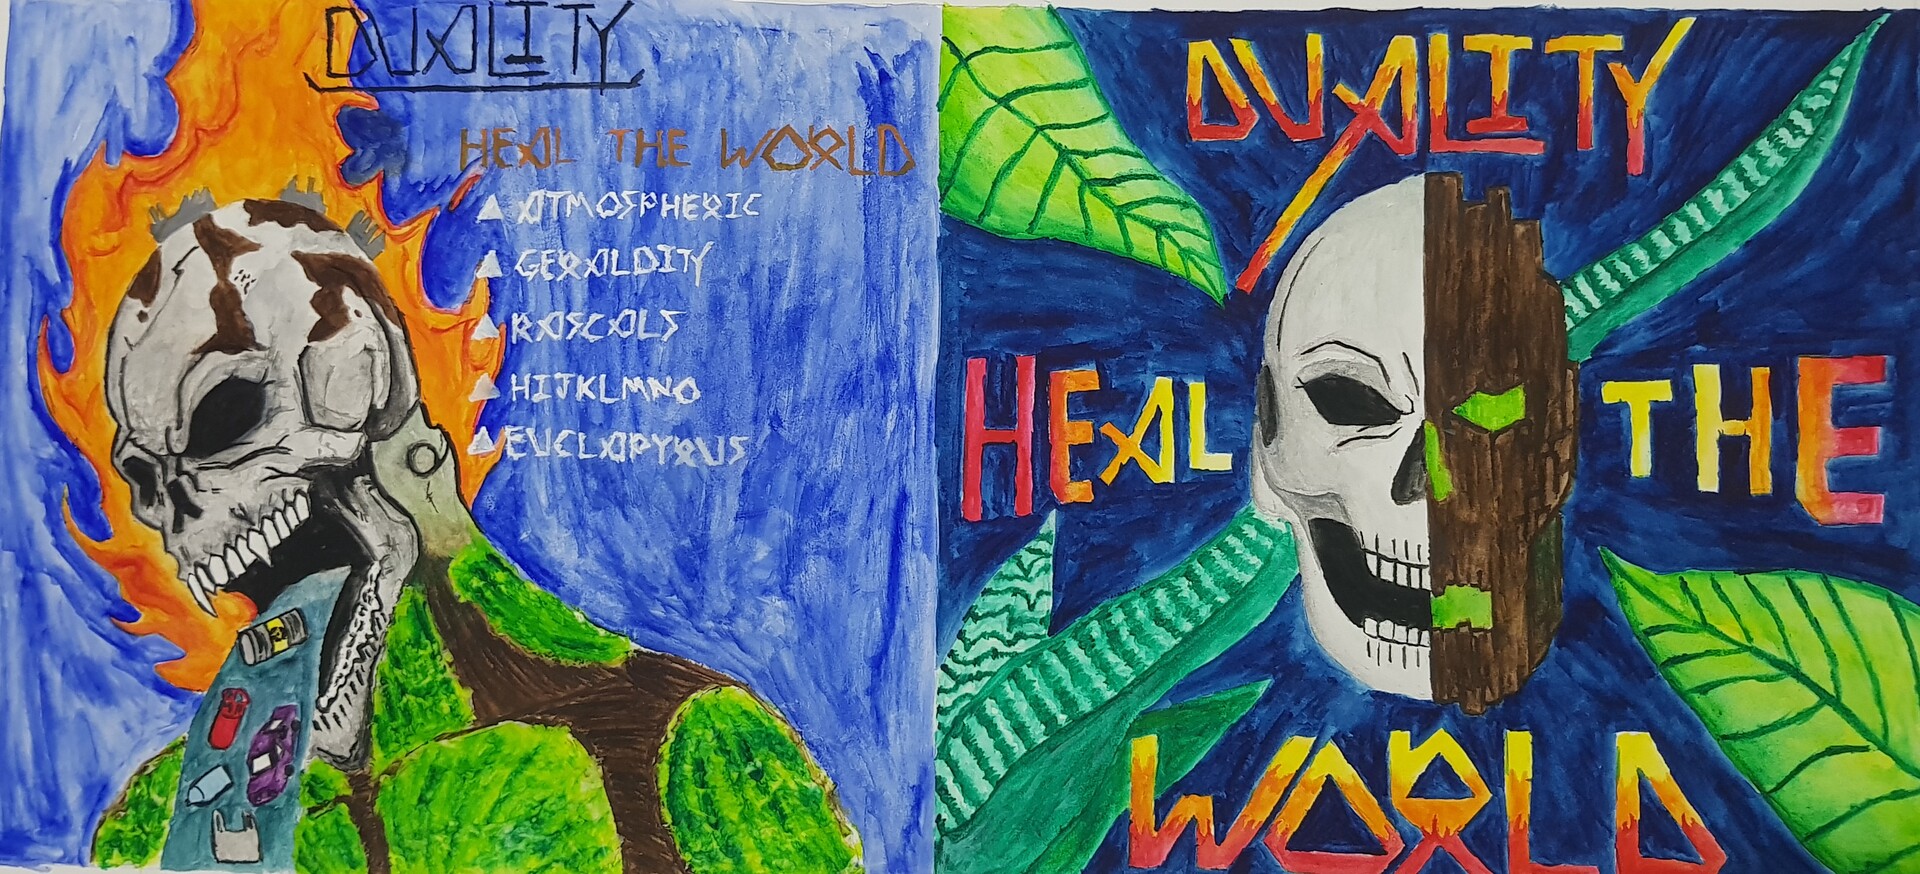 DUALITY
HEAL THE WORLD
ATMOSPHERIC
GERALDITY
RASCALS
HIJKLMNO
EUCLAPYRUS
DUALITY
HEAL THE
WORLD